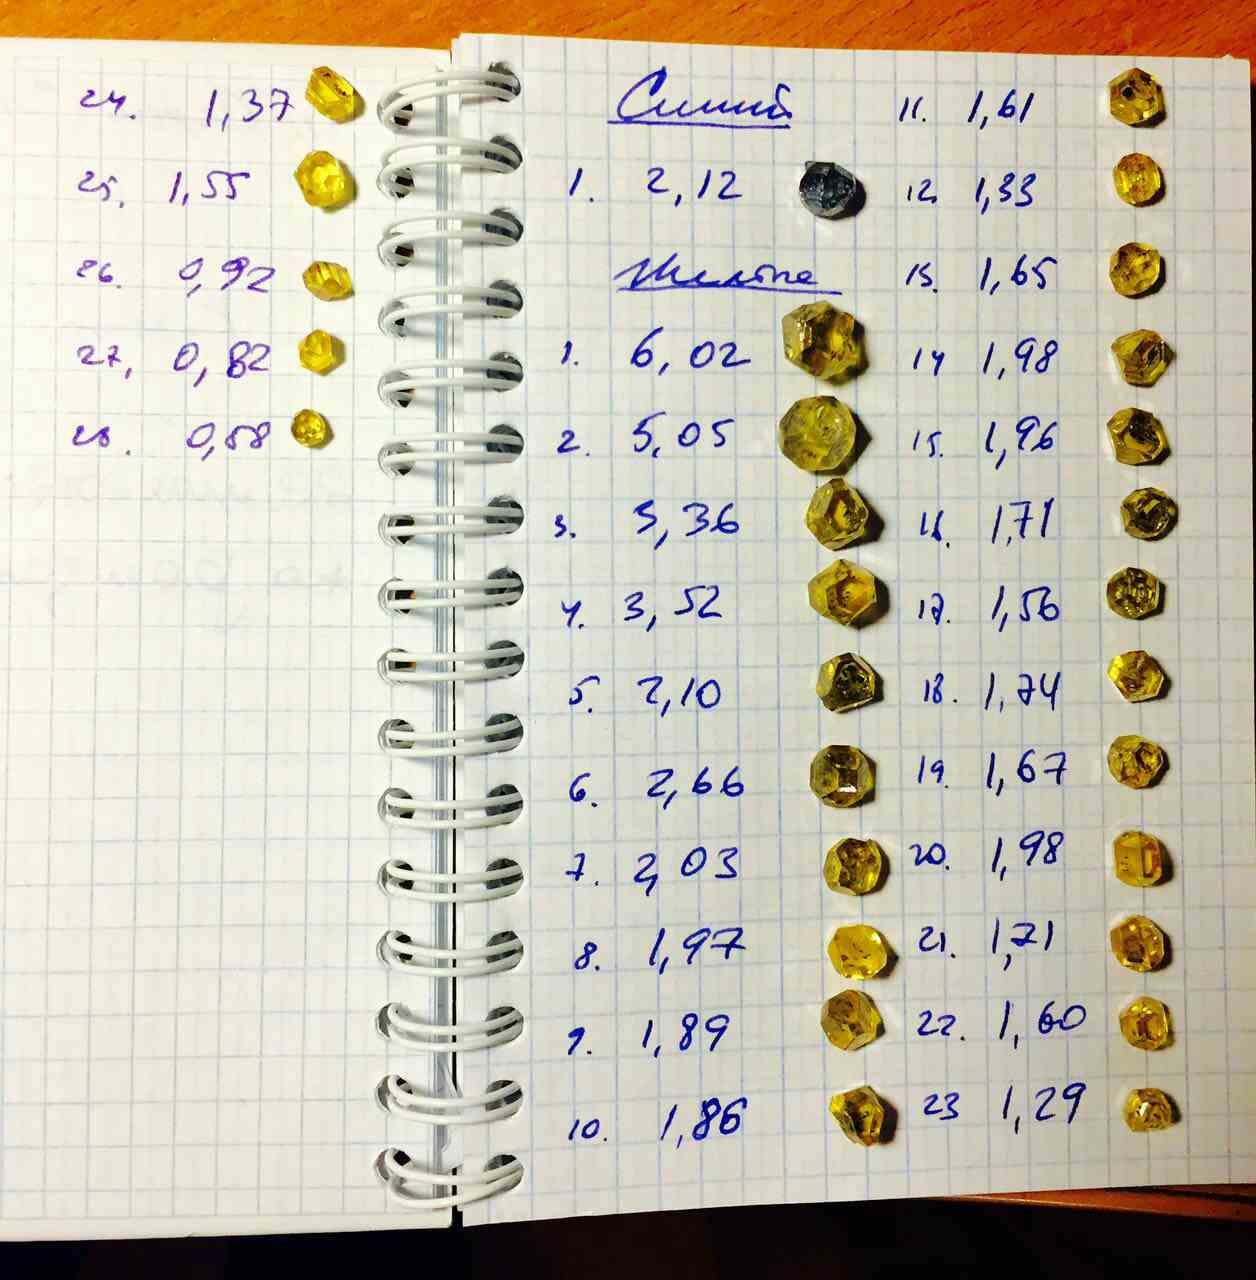 24. 1,37
25. 1,55
26. 0,92
27, 0,82
28. 0,58
Синий
1. 2,12
Желтые
1. 6,02
2. 5,05
3. 3,36
4. 3,52
5. 2,10
6. 2,66
7. 2,03
8. 1,97
9. 1,89
10. 1,86
11. 1,61
12. 1,33
13. 1,65
14 1,98
15. 1,96
16. 1,71
17. 1,56
18. 1,74
19. 1,67
20. 1,98
21. 1,71
22. 1,60
23 1,29